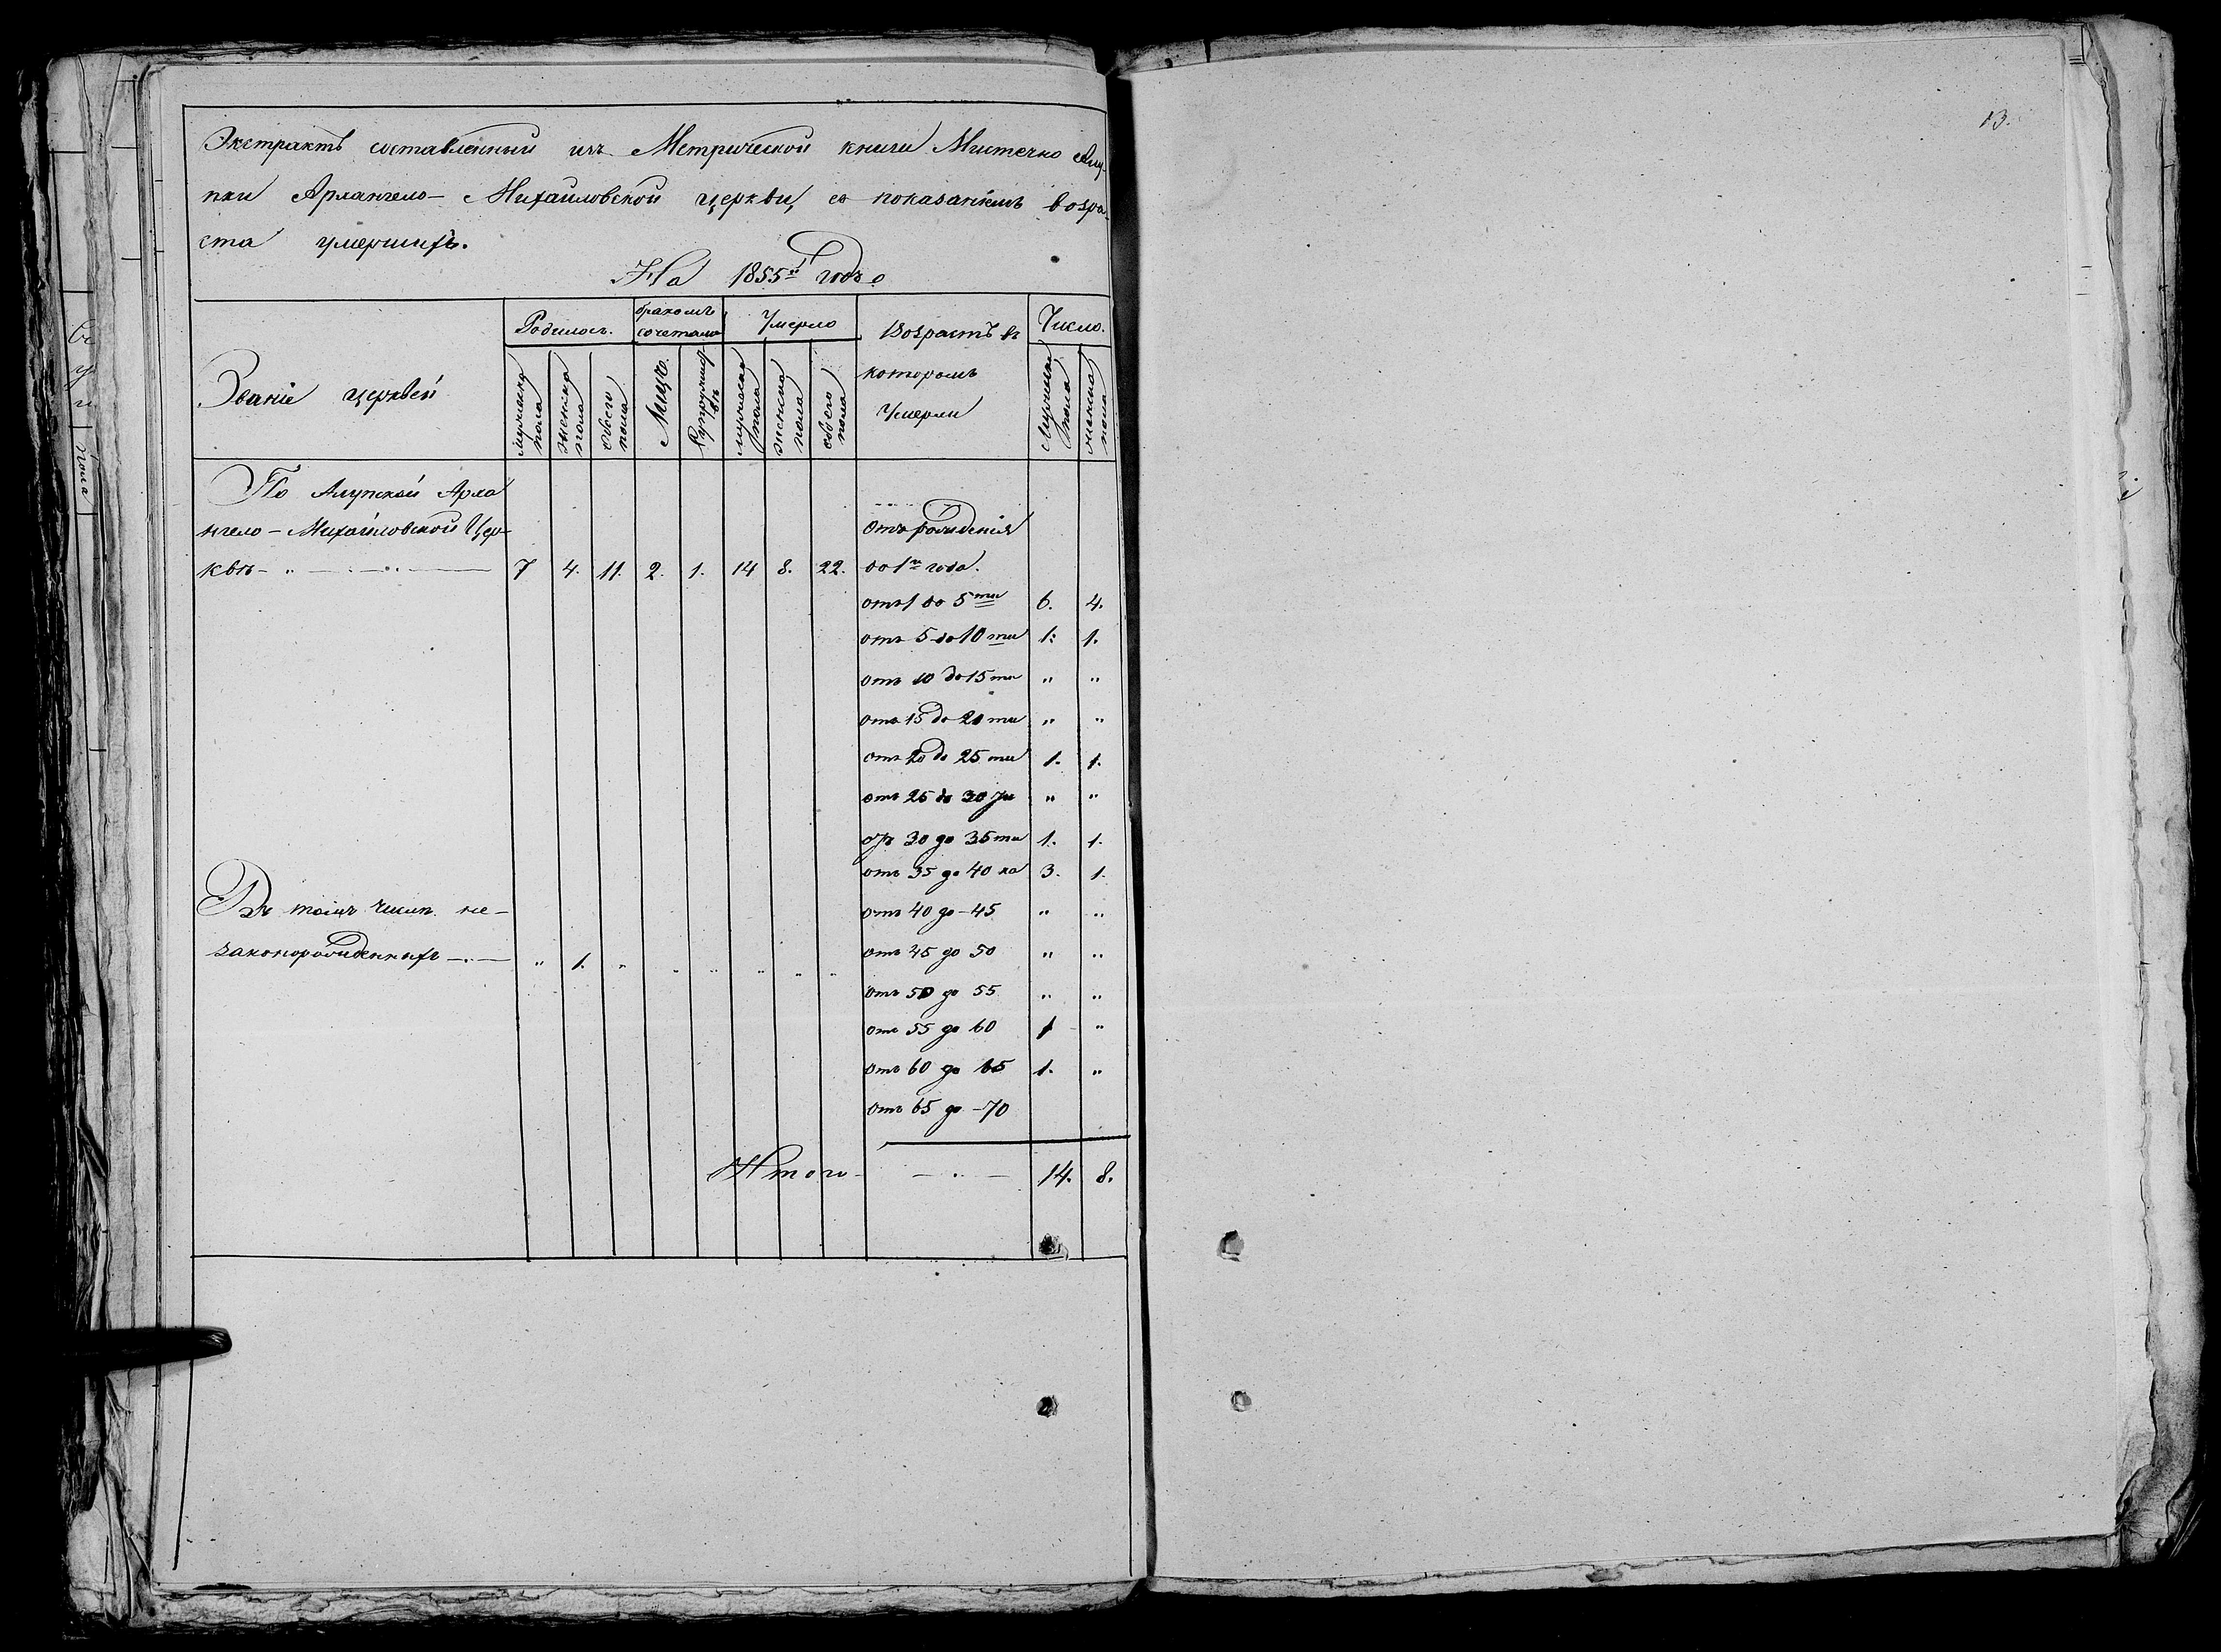 Экстрактъ составленный изъ Метрической книги Мистечко Алу-
пки Архангело-Михайловской церкви, съ показаніемъ возра-
ста умершихъ.
На 1855й годъ.
Званіе церквей
Родилось.
мужеска пола
женска пола
обоего пола
бракомъ сочетало
Лицъ.
Супружествъ
Умерло
мужеска пола
женска пола
обоего пола
Возрастъ въ
которомъ
Умерли
Число.
Мужеска пола
женска пола
По Алупской Арха
нгело-Михайловской Цер-
квѣ- 7 4. 11. 2. 1. 14 8. 22.
Отъ рожденія
до 1го года.
отъ 1 до 5ти 6. 4.
отъ 5 до 10ти 1. 1.
отъ 10 до 15ти " "
отъ 15 до 20ти " "
отъ 20 до 25ти 1. 1.
отъ 25 до 30ти " "
отъ 30 до 35ти 1. 1.
отъ 35 до 40ка 3. 1.
отъ 40 до -45 " "
отъ 45 до 50 " "
отъ 50 до 55 " "
отъ 55 до 60 1 "
отъ 60 до 65 1. "
отъ 65 до -70
Въ томъ числѣ не-
законорожденныхъ " 1. " " " " " "
Итого 14. 8.
13.